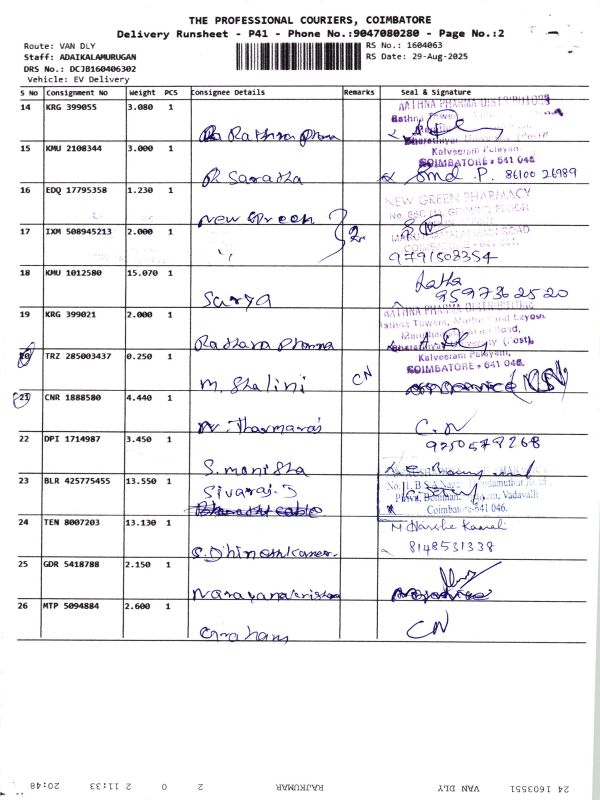 THE PROFESSIONAL COURIERS, COIMBATORE
Delivery Runsheet - P41 - Phone No.:9047080280 - Page No.:2
Route: VAN DLY
RS No.: 1604063
Staff: ADAIKALAMURUGAN
RS Date: 29-Aug-2025
DRS No.: DCJB160406302
Vehicle: EV Delivery
S No Consignment No Weight PCS Consignee Details Remarks Seal & Signature
14 KRG 399055 3.080 1
Rathna Pharma
RATHNA PHARMA DISTRIBUTORS
Kalveeram Palayam,
COIMBATORE - 641 046.
15 KMU 2108344 3.000 1
R Saratha
P. 86100 26989
16 EDQ 17795358 1.230 1
New Green
NEW GREEN PHARMACY
17 IXM 508945213 2.000 1
9791503354
18 KMU 1012580 15.070 1
Surya
Latha
9597362520
19 KRG 399021 2.000 1
Rathna Pharma
RATHNA PHARMA DISTRIBUTORS
Kalveeram Palayam,
COIMBATORE - 641 046.
20 TRZ 285003437 0.250 1
M. Shalini CN
21 CNR 1888580 4.440 1
N. Tharmaraj
C.N
22 DPI 1714987 3.450 1
S. Monisha
9250579268
23 BLR 425775455 13.550 1
Sivaraj. J
Vadavalli
Coimbatore-641 046.
24 TEN 8007203 13.130 1
S. Dhineshkumar
8148531338
25 GDR 5418788 2.150 1
Narayanakrishna
26 MTP 5094884 2.600 1
Graham
CN
24 1603551 VAN DLY RAJKUMAR 2 0 2 11:33 20:48